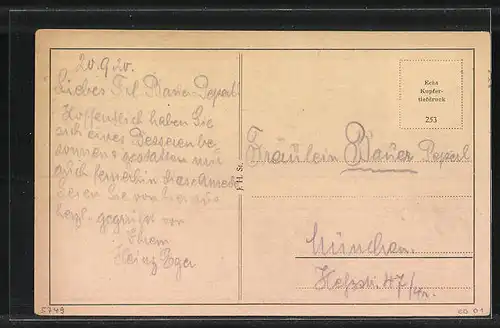 20.9.20.
Liebes Frl. Bauer
Hoffentlich haben Sie
sich eines Besseren be-
sonnen & gestatten mir
auch fernerhin diese Anrede
Seien Sie von hier aus
herzl. gegrüßt von
Ihrem
Heinz Eger
J. H. St.
Echt
Kupfer-
tiefdruck
253
Fräulein Bauer
München.
5749